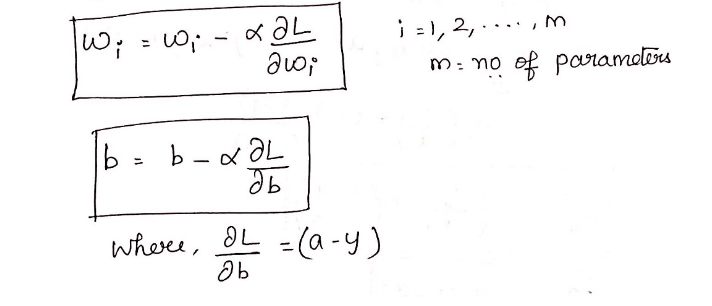 wᵢ = wᵢ - α ∂L/∂wᵢ
i = 1, 2, ...., m
m = no. of parameters
b = b - α ∂L/∂b
where, ∂L/∂b = (a - y)